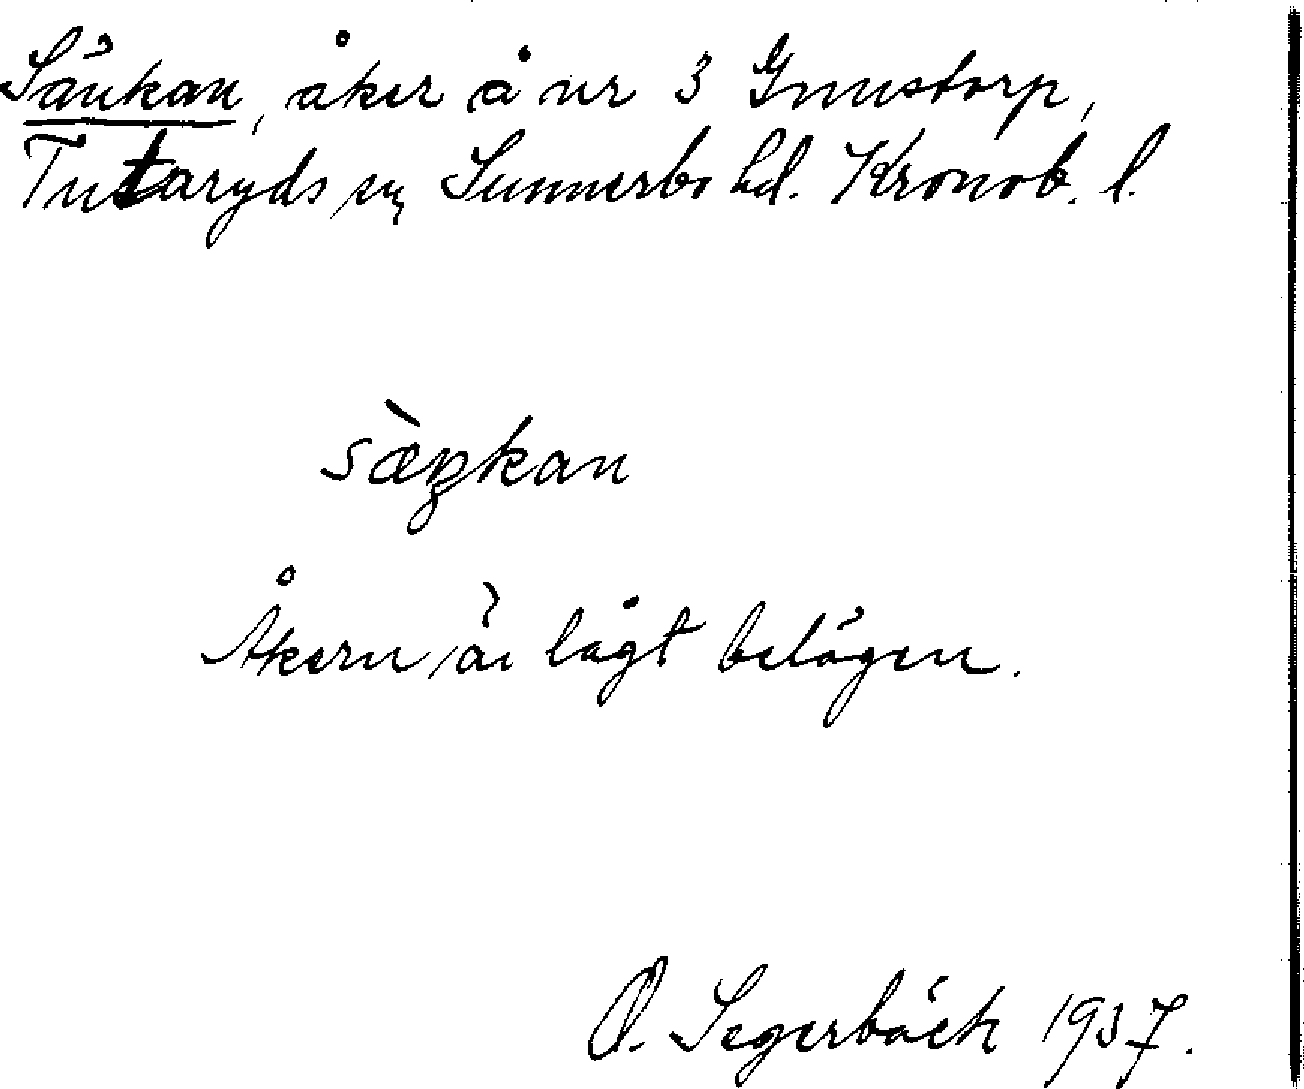 Sänkan, åker å nr 3 Gnustorp,
Tutaryds sn, Sunnerbo hd. Kronob. l.
sæ̀ŋkan
Åkern är lågt belägen.
O. Segerbäck 1937.